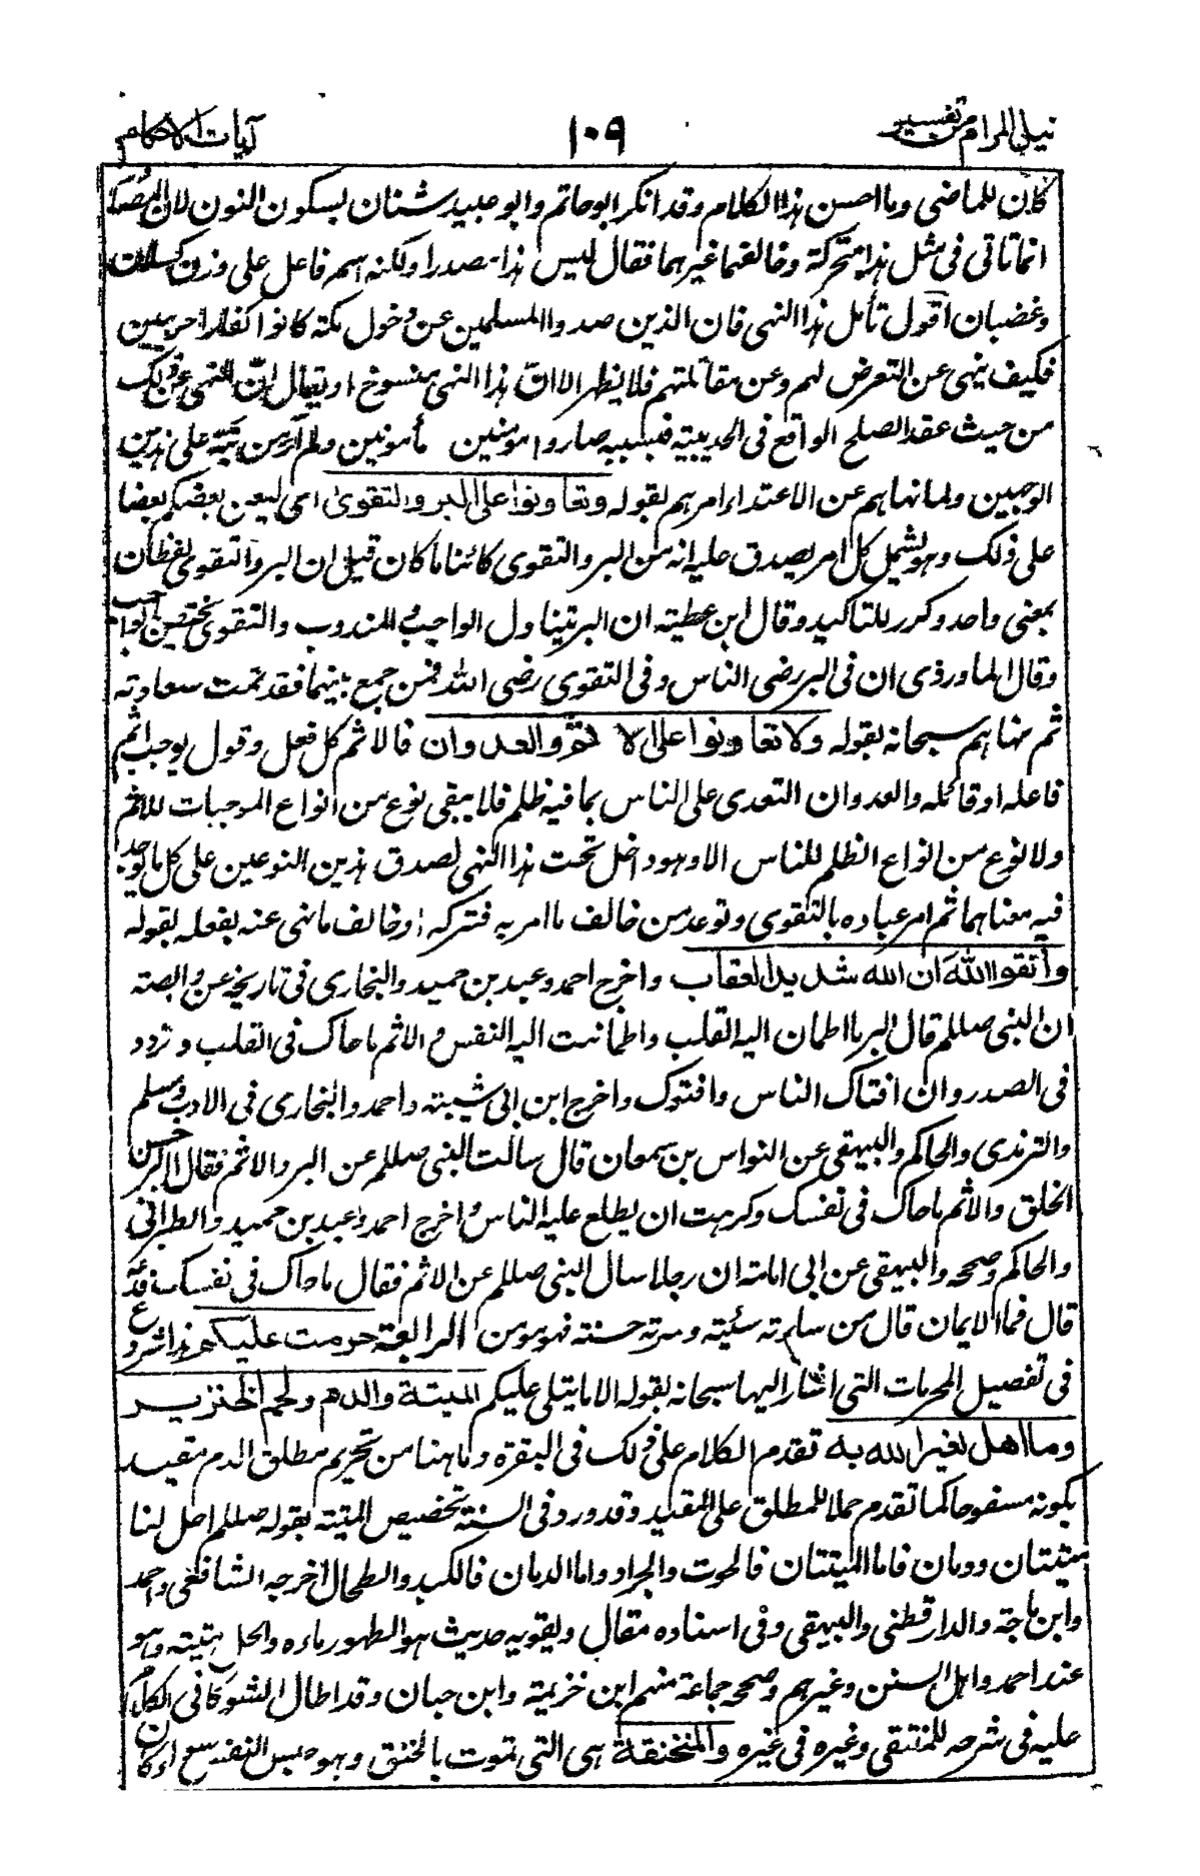 نيل المرام من تفسير ١٠٩ آيات الاحكام
كان للماضى وما احسن هذا الكلام وقد انكر ابو حاتم وابو عبيد شنان بسكون النون لان المصادر
انما تاتى فى مثل هذا متحركة وخالفهما غيرهما فقال ليس هذا مصدرا ولكنه اسم فاعل على وزن كسلان
وغضبان اقول تأمل هذا النهى فان الذين صدوا المسلمين عن دخول مكة كانوا كفارا حربيين
فكيف ينهى عن التعرض لهم وعن مقاتلتهم فلا يظهر الا ان هذا النهى منسوخ او يقال ان النهى عن ذلك
من حيث عقد الصلح الواقع فى الحديبية فبسببه صاروا مومنين مأمونين ولم أر من نبه على هذين
الوجهين ولما نهاهم عن الاعتداء امرهم بقوله وتعاونوا على البر والتقوى اى ليعن بعضكم بعضا
على ذلك وهو يشمل كل امر يصدق عليه انه من البر والتقوى كائنا ما كان قيل ان البر والتقوى لفظان
بمعنى واحد وكرر للتاكيد وقال ابن عطية ان البر يتناول الواجب والمندوب والتقوى يختص بالواجب
وقال الماوردى ان فى البر رضى الناس وفى التقوى رضى الله فمن جمع بينهما فقد تمت سعادته
ثم نهاهم سبحانه بقوله ولا تعاونوا على الاثم والعدوان فالاثم كل فعل وقول يوجب اثم
فاعله او قائله والعدوان التعدى على الناس بما فيه ظلم فلا يبقى نوع من انواع الموجبات للاثم
ولا نوع من انواع الظلم للناس الا وهو داخل تحت هذا النهى لصدق هذين النوعين على كل ما يوجد
فيه معناهما ثم امر عباده بالتقوى وتوعد من خالف ما امر به فتركه او خالف ما نهى عنه بفعله بقوله
واتقوا الله ان الله شديد العقاب واخرج احمد وعبد بن حميد والبخارى فى تاريخه عن وابصة
ان النبى صللم قال البر ما اطمان اليه القلب واطمانت اليه النفس والاثم ما حاك فى القلب وتردد
فى الصدر وان افتاك الناس وافتوك واخرج ابن ابى شيبة واحمد والبخارى فى الادب ومسلم
والترمذى والحاكم والبيهقى عن النواس بن سمعان قال سالت النبى صللم عن البر والاثم فقال البر حسن
الخلق والاثم ما حاك فى نفسك وكرهت ان يطلع عليه الناس واخرج احمد وعبد بن حميد والطبرانى
والحاكم وصححه والبيهقى عن ابى امامة ان رجلا سال النبى صللم عن الاثم فقال ما حاك فى نفسك فدعه
قال فما الايمان قال من ساءته سئيته وسرته حسنة فهو مومن الرابعة حرمت عليكم هذا شروع
فى تفصيل المحرمات التى اشار اليها سبحانه بقوله الا ما يتلى عليكم الميتة والدم ولحم الخنزير
وما اهل لغير الله به تقدم الكلام على ذلك فى البقرة وما هنا من تحريم مطلق الدم مقيد
بكونه مسفوحا كما تقدم حملا للمطلق على المقيد وقد ورد فى السنة تخصيص الميتة بقوله صللم احل لنا
ميتتان ودمان فاما الميتتان فالحوت والجراد واما الدمان فالكبد والطحال اخرجه الشافعى واحمد
وابن ماجة والدارقطنى والبيهقى وفى اسناده مقال ويقويه حديث هو الطهور ماءه والحل ميتته وهو
عند احمد واهل السنن وغيرهم وصححه جماعة منهم ابن خزيمة وابن حبان وقد اطال الشوكانى الكلام
عليه فى شرحه للمنتقى وغيره فى غيره والمنخنقة هى التى تموت بالخنق وهو حبس النفس سواء كان